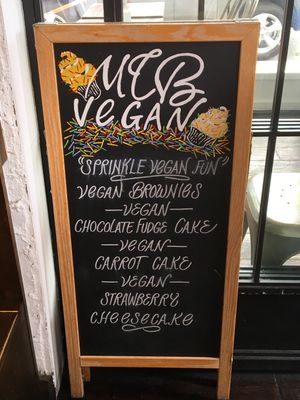 MCB
VEGAN
"SPRINKLE VEGAN FUN"
VEGAN BROWNIES
—VEGAN—
CHOCOLATE FUDGE CAKE
—VEGAN—
CARROT CAKE
—VEGAN—
STRAWBERRY
CHEESECAKE